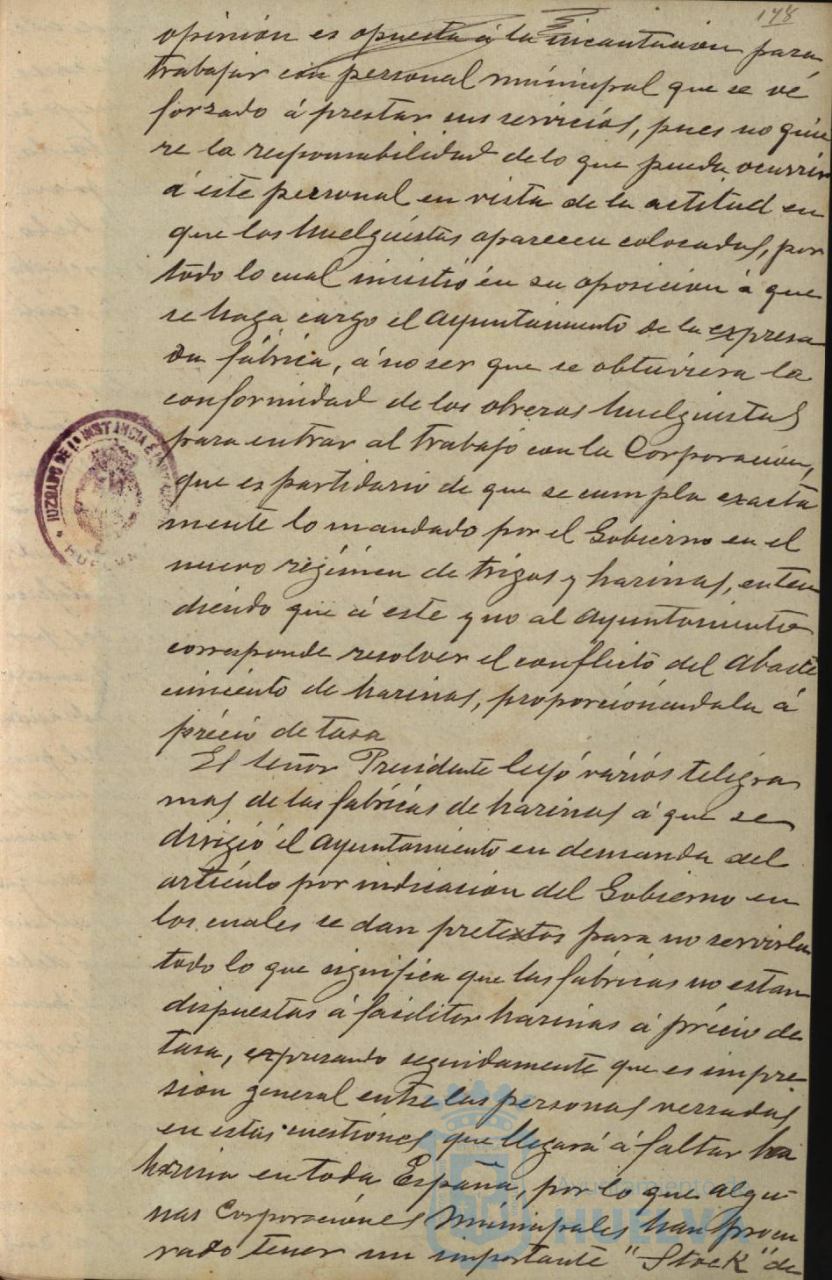 178
opinión es opuesta á la incautacion para
trabajar con personal municipal que se vé
forzado á prestar sus servicios, pues no quie
re la responsabilidad de lo que pueda ocurrir
á este personal en vista de la actitud en
que los huelguistas aparecen colocados, por
todo lo cual insistió en su oposicion á que
se haga cargo el Ayuntamiento de la expresa
da fábrica, á no ser que se obtuviera la
conformidad de los obreros huelguistas
para entrar al trabajo con la Corporacion,
que es partidario de que se cumpla exacta
mente lo mandado por el Gobierno en el
nuevo régimen de trigos y harinas, enten
diendo que á este y no al Ayuntamiento
corresponde resolver el conflicto del Abaste
cimiento de harinas, proporcionandola á
précio de tasa
El señor Presidente leyó vários telégra
mas de las fabricas de harinas á que se
dirigió el Ayuntamiento en demanda del
artículo por indicacion del Gobierno en
los cuales se dan pretextos para no servirla
todo lo que significa que las fábricas no estan
dispuestas á facilitar harinas á précio de
tasa, expresando seguidamente que es impre
sion general entre las personas versadas
en estas cuestiones que llegará á faltar
harina en toda España, por lo que algu
nas Corporaciones Municipales han procu
rado tener un importante "Stock" de
JUZGADO DE 1ª INSTANCIA É
HUELVA
Ayuntamiento
HUELVA